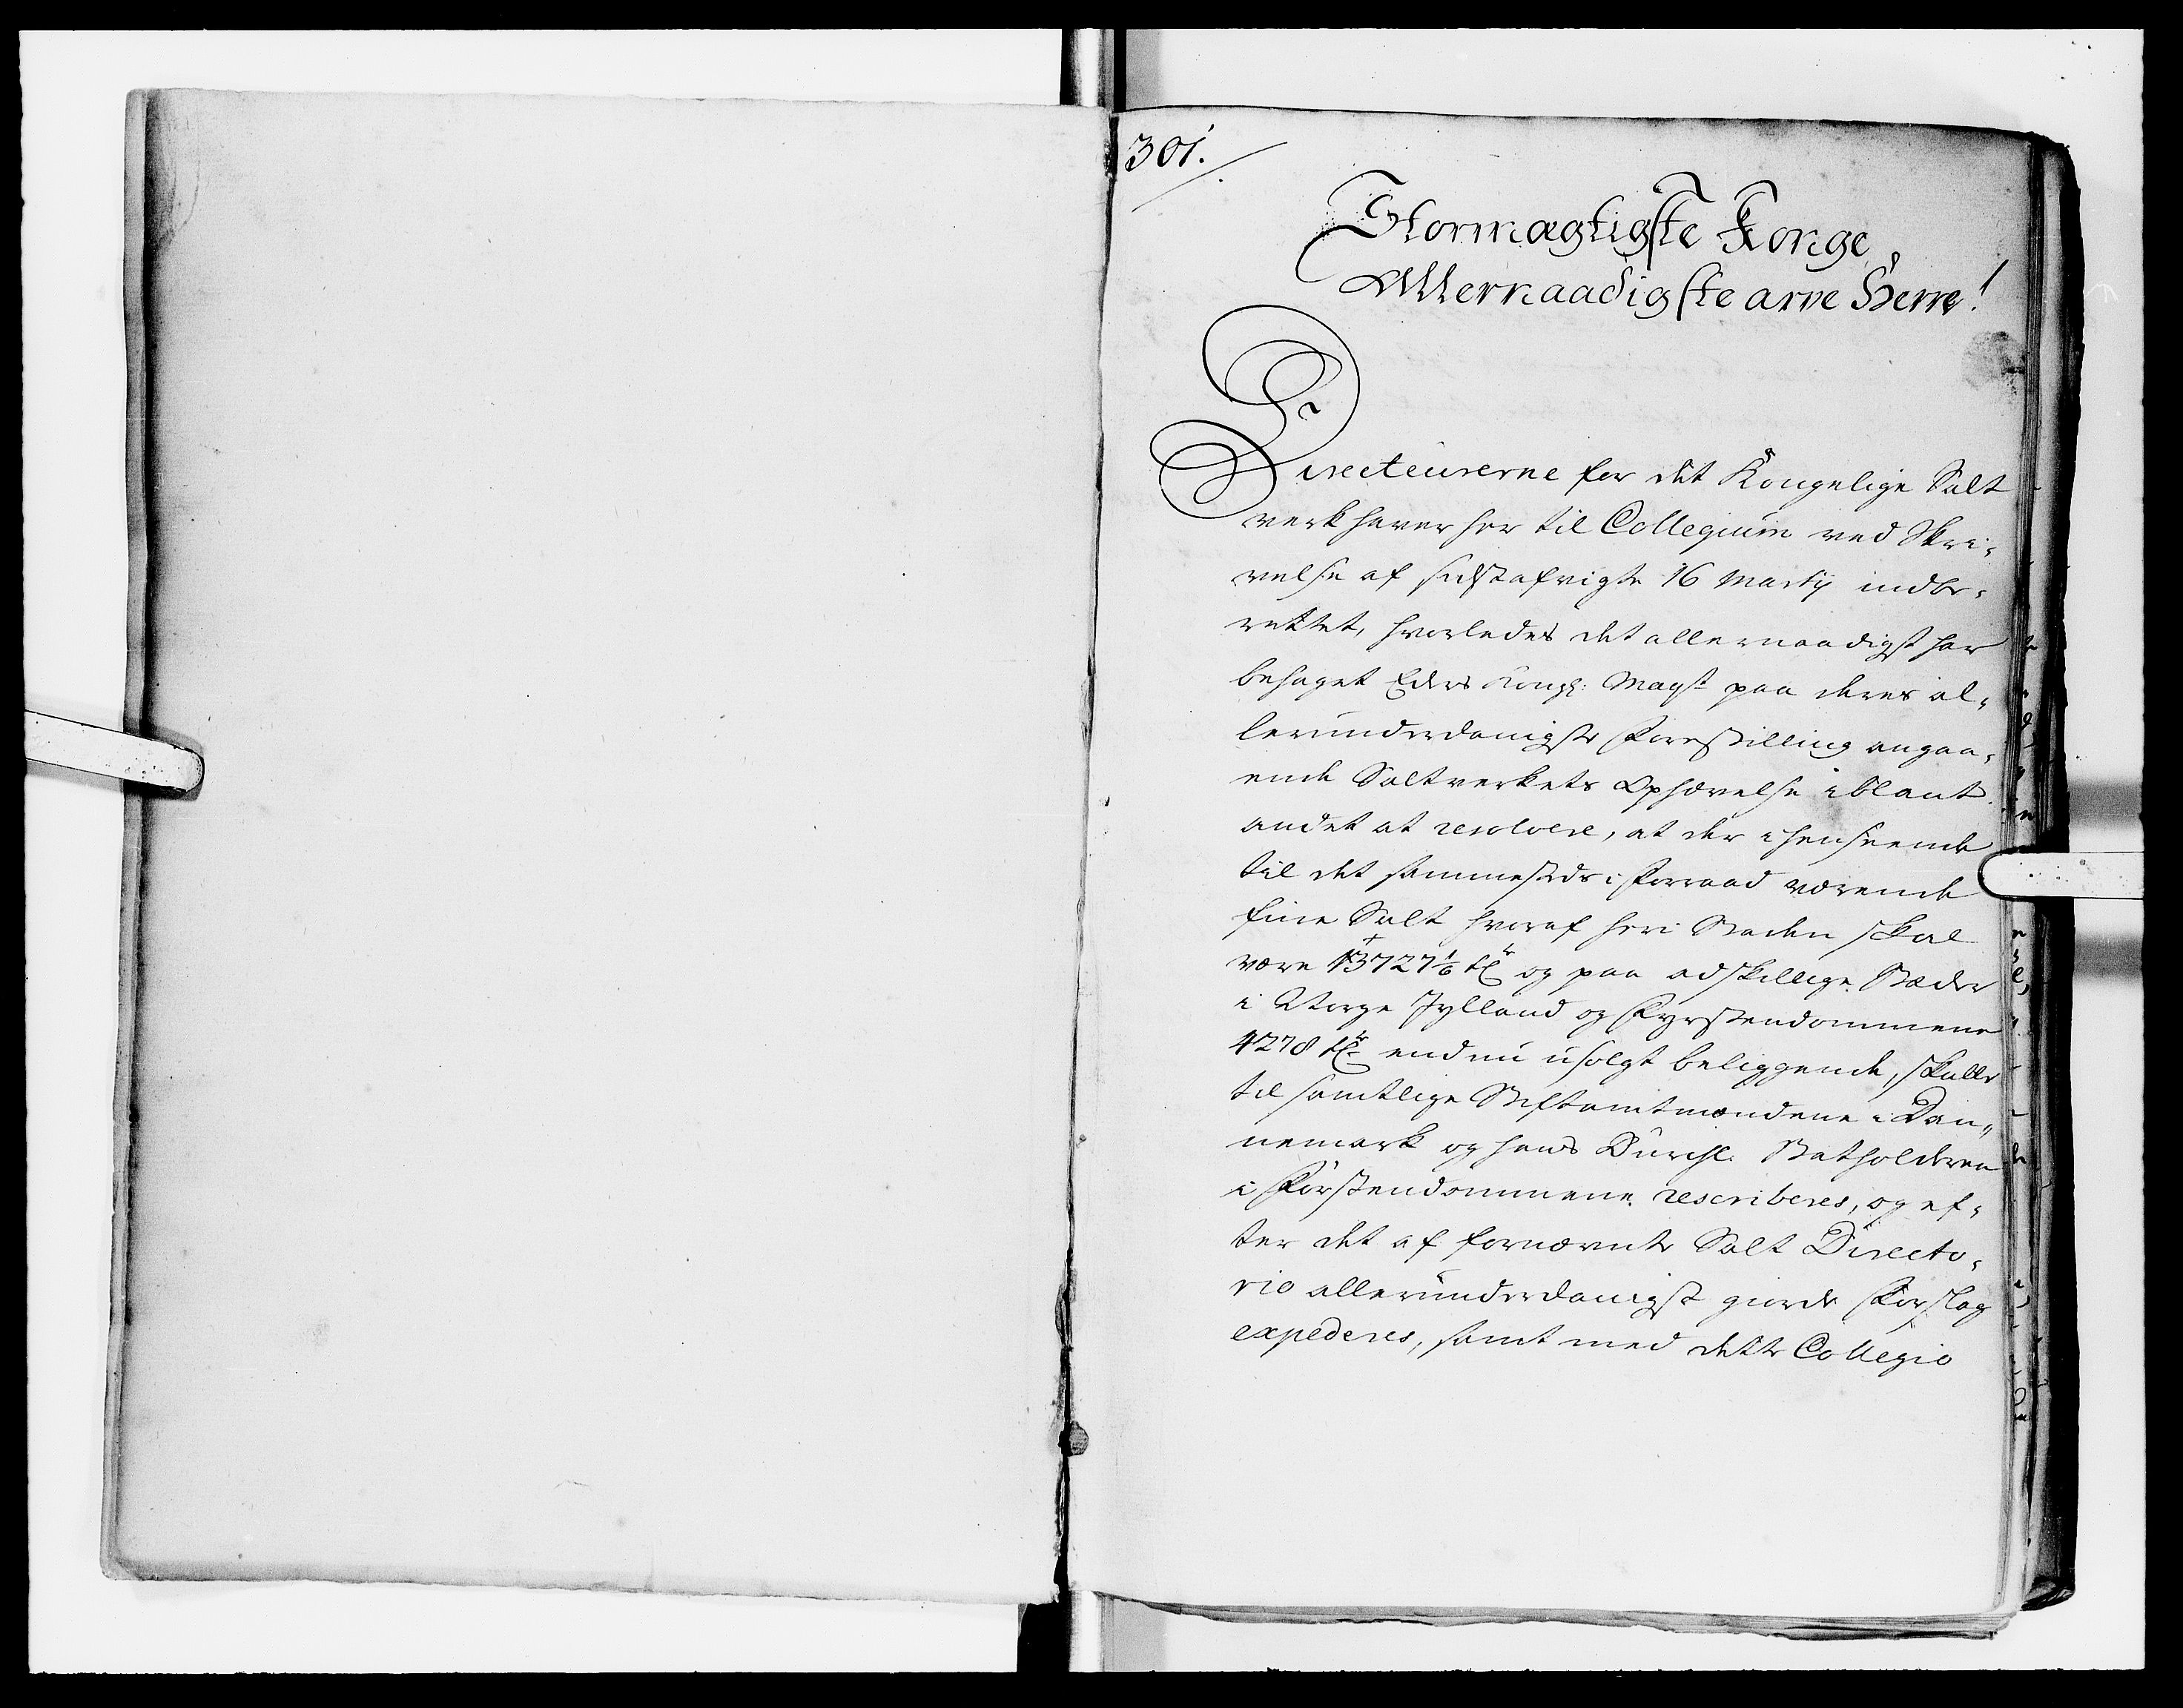 301.
Stormægtigste Konge
Allernaadigste arve Herre!
Directeurerne for det Kongelige Salt
verk haver her til Collegium ved Skri-
velse af sidstafvigte 16 Martij indbe-
rettet, hvorledes det allernaadigst har
behaget Eders Kongl: Mayst paa deres al-
lerunderdanigste Forestilling angaa-
ende Saltverkets Ophævelse iblant
andet at resolvere, at der i henseende
til det sammesteds i Forraad værende
fine Salt hvoraf her i Staden skal
være 13727 1/6 tr og paa adskillige Stæder
i Norge Jylland og Fyrstendommene
4278 tr endnu usolgt beliggende, skulle
til samtlige Stiftamtmændene i Dan-
nemark og hans Durchl. Statholderen
i Førstendommene rescriberes, og ef-
ter det af fornævnte Salt Directo-
rio allerunderdanigst giorde Forslag
expederes, samt med dette Collegio